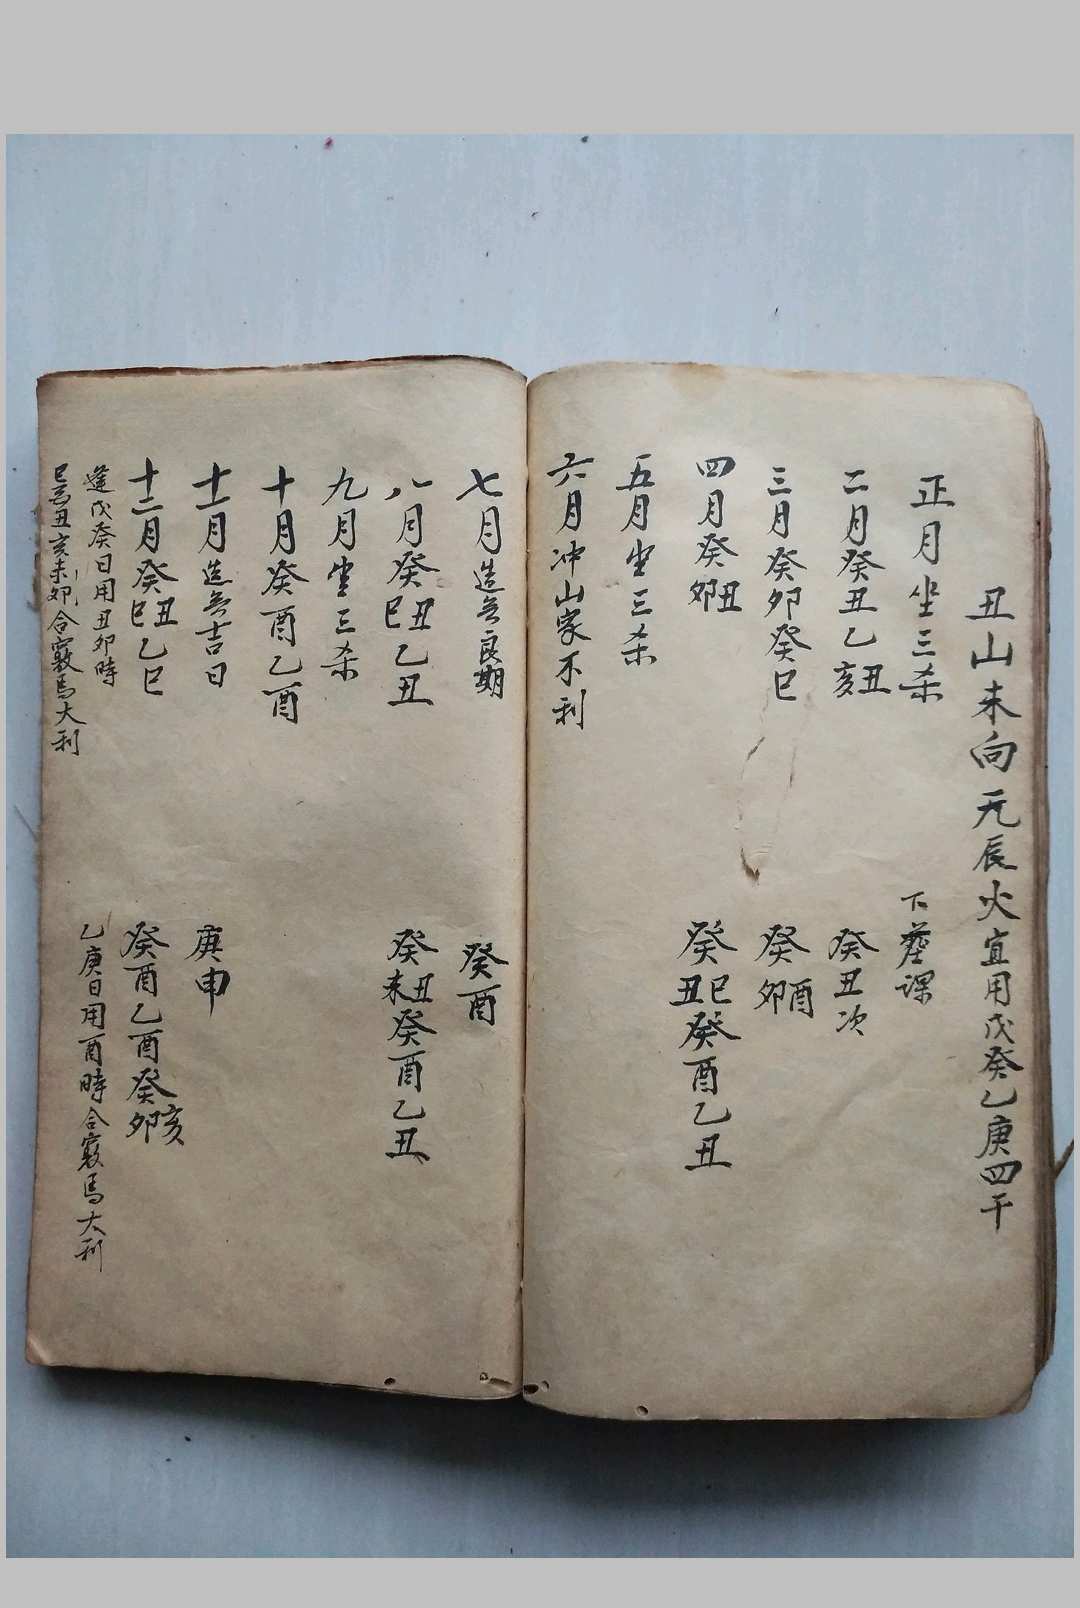 丑山未向元辰火宜用戊癸乙庚四干
正月坐三杀
下葬課
二月癸丑乙丑亥
癸丑次
三月癸卯癸巳
癸酉卯
四月癸丑卯
癸巳丑癸酉乙丑
五月坐三杀
六月冲山家不利
七月造无良期
癸酉
八月癸丑巳乙丑
癸丑未癸酉乙丑
九月坐三杀
十月癸酉乙酉
十一月造无吉日
庚申
十二月癸丑巳乙巳
癸酉乙酉癸亥卯
逢戊癸日用丑卯時
乙庚日用酉時合竅馬大利
巳丑亥未卯合竅馬大利